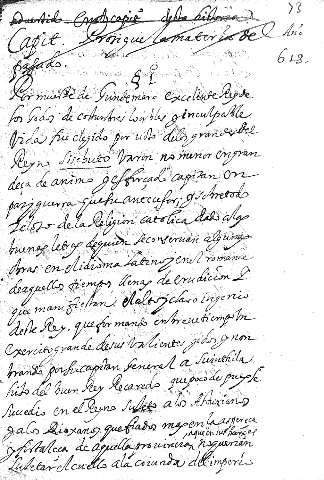 73
Capit Prosigue la materia de
Año
613.
§ 1
Por muerte de Gundemaro excelente Rey de
los Godos de costumbres loables y inculpable
vida fue elegido por voto de los grandes del
Reyno Sisebuto Varon no menor en gran
deça de animo y esforçado capitan en
paz y guerra que su antecesor, y sobre todo
zeloso de la Religion catolica dado a las
buenas letras de quien se conservan algunas
obras en el idioma latino y en el romance
de aquellos tiempos llenas de erudicion
que manifiestan el alto y claro ingenio
deste Rey. que formando en breve tiempo un
exercito grande de sus valientes godos y nom
brando por su capitan general a Suinthila
hijo del buen Rey Recaredo que poco despues le
sucedio en el Reyno a los Asturianos
y a los Rioxanos, que fiados mas en la aspereza
y fortaleza de aquella provincia no querian
sujetar el cuello a la coiunda del imperio